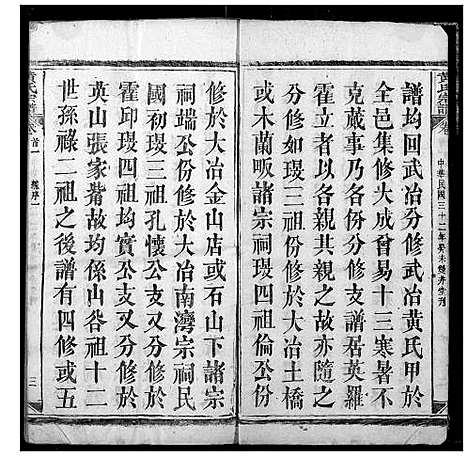 黃氏宗譜
中華民國三十二年癸未續弆堂刊
譜均回武冶分修武冶黃氏甲於
全邑集修大成曾易十三寒暑不
克蕆事乃各份修支譜居英羅
霍立者以各親其親之故亦隨之
分修如瑗三祖份修於大冶土橋
或木蘭畈諸宗祠瑗四祖倫公份
修於大冶金山店或石山下諸宗
祠端公份修於大冶南灣宗祠民
國初瑗三祖孔懷公支又分修於
霍邱瑗四祖均實公支分修於
英山張家觜故均係山谷祖十二
世孫祿二祖之後譜有四修或五
黃氏宗譜
卷首一
三